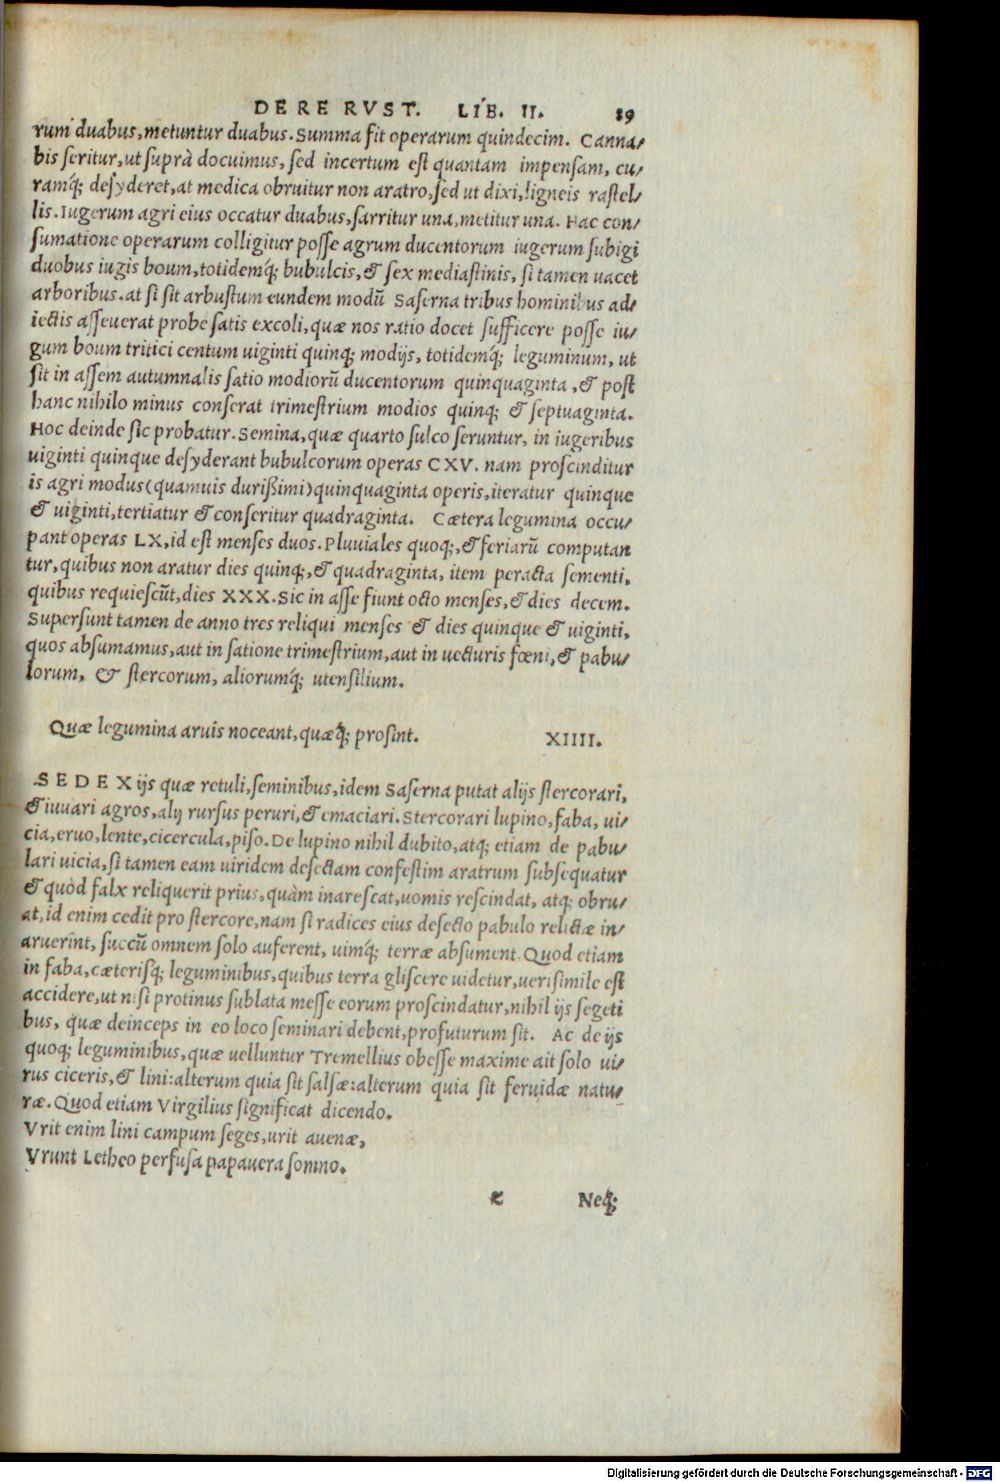 DE RE RVST. LIB. II. 89
rum duabus, metuntur duabus. Summa fit operarum quindecim. Canna/
bis seritur, ut suprà docuimus, sed incertum est quantam impensam, cu/
ramq́; desyderet, at medica obruitur non aratro, sed ut dixi, ligneis rastel/
lis. Iugerum agri eius occatur duabus, sarritur una, metitur una. Hac con/
sumatione operarum colligitur posse agrum ducentorum iugerum subigi
duobus iugis boum, totidemq́; bubulcis, & sex mediastinis, si tamen uacet
arboribus. at si sit arbustum eundem modū Saserna tribus hominibus ad/
iectis asseuerat probe satis excoli, quæ nos ratio docet sufficere posse iu/
gum boum tritici centum uiginti quinq; modijs, totidemq́; leguminum, ut
sit in assem autumnalis satio modiorū ducentorum quinquaginta, & post
hanc nihilo minus conserat trimestrium modios quinq; & septuaginta.
Hoc deinde sic probatur. Semina, quæ quarto sulco seruntur, in iugeribus
uiginti quinque desyderant bubulcorum operas CXV. nam proscinditur
is agri modus (quamuis durißimi) quinquaginta operis, iteratur quinque
& uiginti, tertiatur & conseritur quadraginta. Cætera legumina occu/
pant operas LX, id est menses duos. Pluuiales quoq;, & feriarū computan
tur, quibus non aratur dies quinq;, & quadraginta, item peracta sementi,
quibus requiescūt, dies XXX. Sic in asse fiunt octo menses, & dies decem.
Supersunt tamen de anno tres reliqui menses & dies quinque & uiginti,
quos absumamus, aut in satione trimestrium, aut in uecturis fœni, & pabu/
lorum, & stercorum, aliorumq́; utensilium.
Quæ legumina aruis noceant, quæq́; prosint. XIIII.
SED EX ijs quæ retuli, seminibus, idem Saserna putat alijs stercorari,
& iuuari agros, alij rursus peruri, & emaciari. Stercorari lupino, faba, ui/
cia, eruo, lente, cicercula, piso. De lupino nihil dubito, atq; etiam de pabu/
lari uicia, si tamen eam uiridem desectam confestim aratrum subsequatur
& quòd falx reliquerit prius, quàm inarescat, uomis rescindat, atq; obru/
at, id enim cedit pro stercore, nam si radices eius desecto pabulo relictæ in/
aruerint, succū omnem solo auferent, uimq́; terræ absument. Quod etiam
in faba, cæterisq; leguminibus, quibus terra gliscere uidetur, uerisimile est
accidere, ut nisi protinus sublata messe eorum proscindatur, nihil ijs segeti
bus, quæ deinceps in eo loco seminari debent, profuturum sit. Ac de ijs
quoq; leguminibus, quæ uelluntur Tremellius obesse maxime ait solo ui/
rus ciceris, & lini: alterum quia sit salsæ: alterum quia sit feruidæ natu/
ræ. Quod etiam Virgilius significat dicendo.
Vrit enim lini campum seges, urit auenæ,
Vrunt Letheo perfusa papauera somno.
Neq́;
Digitalisierung gefördert durch die Deutsche Forschungsgemeinschaft - DFG